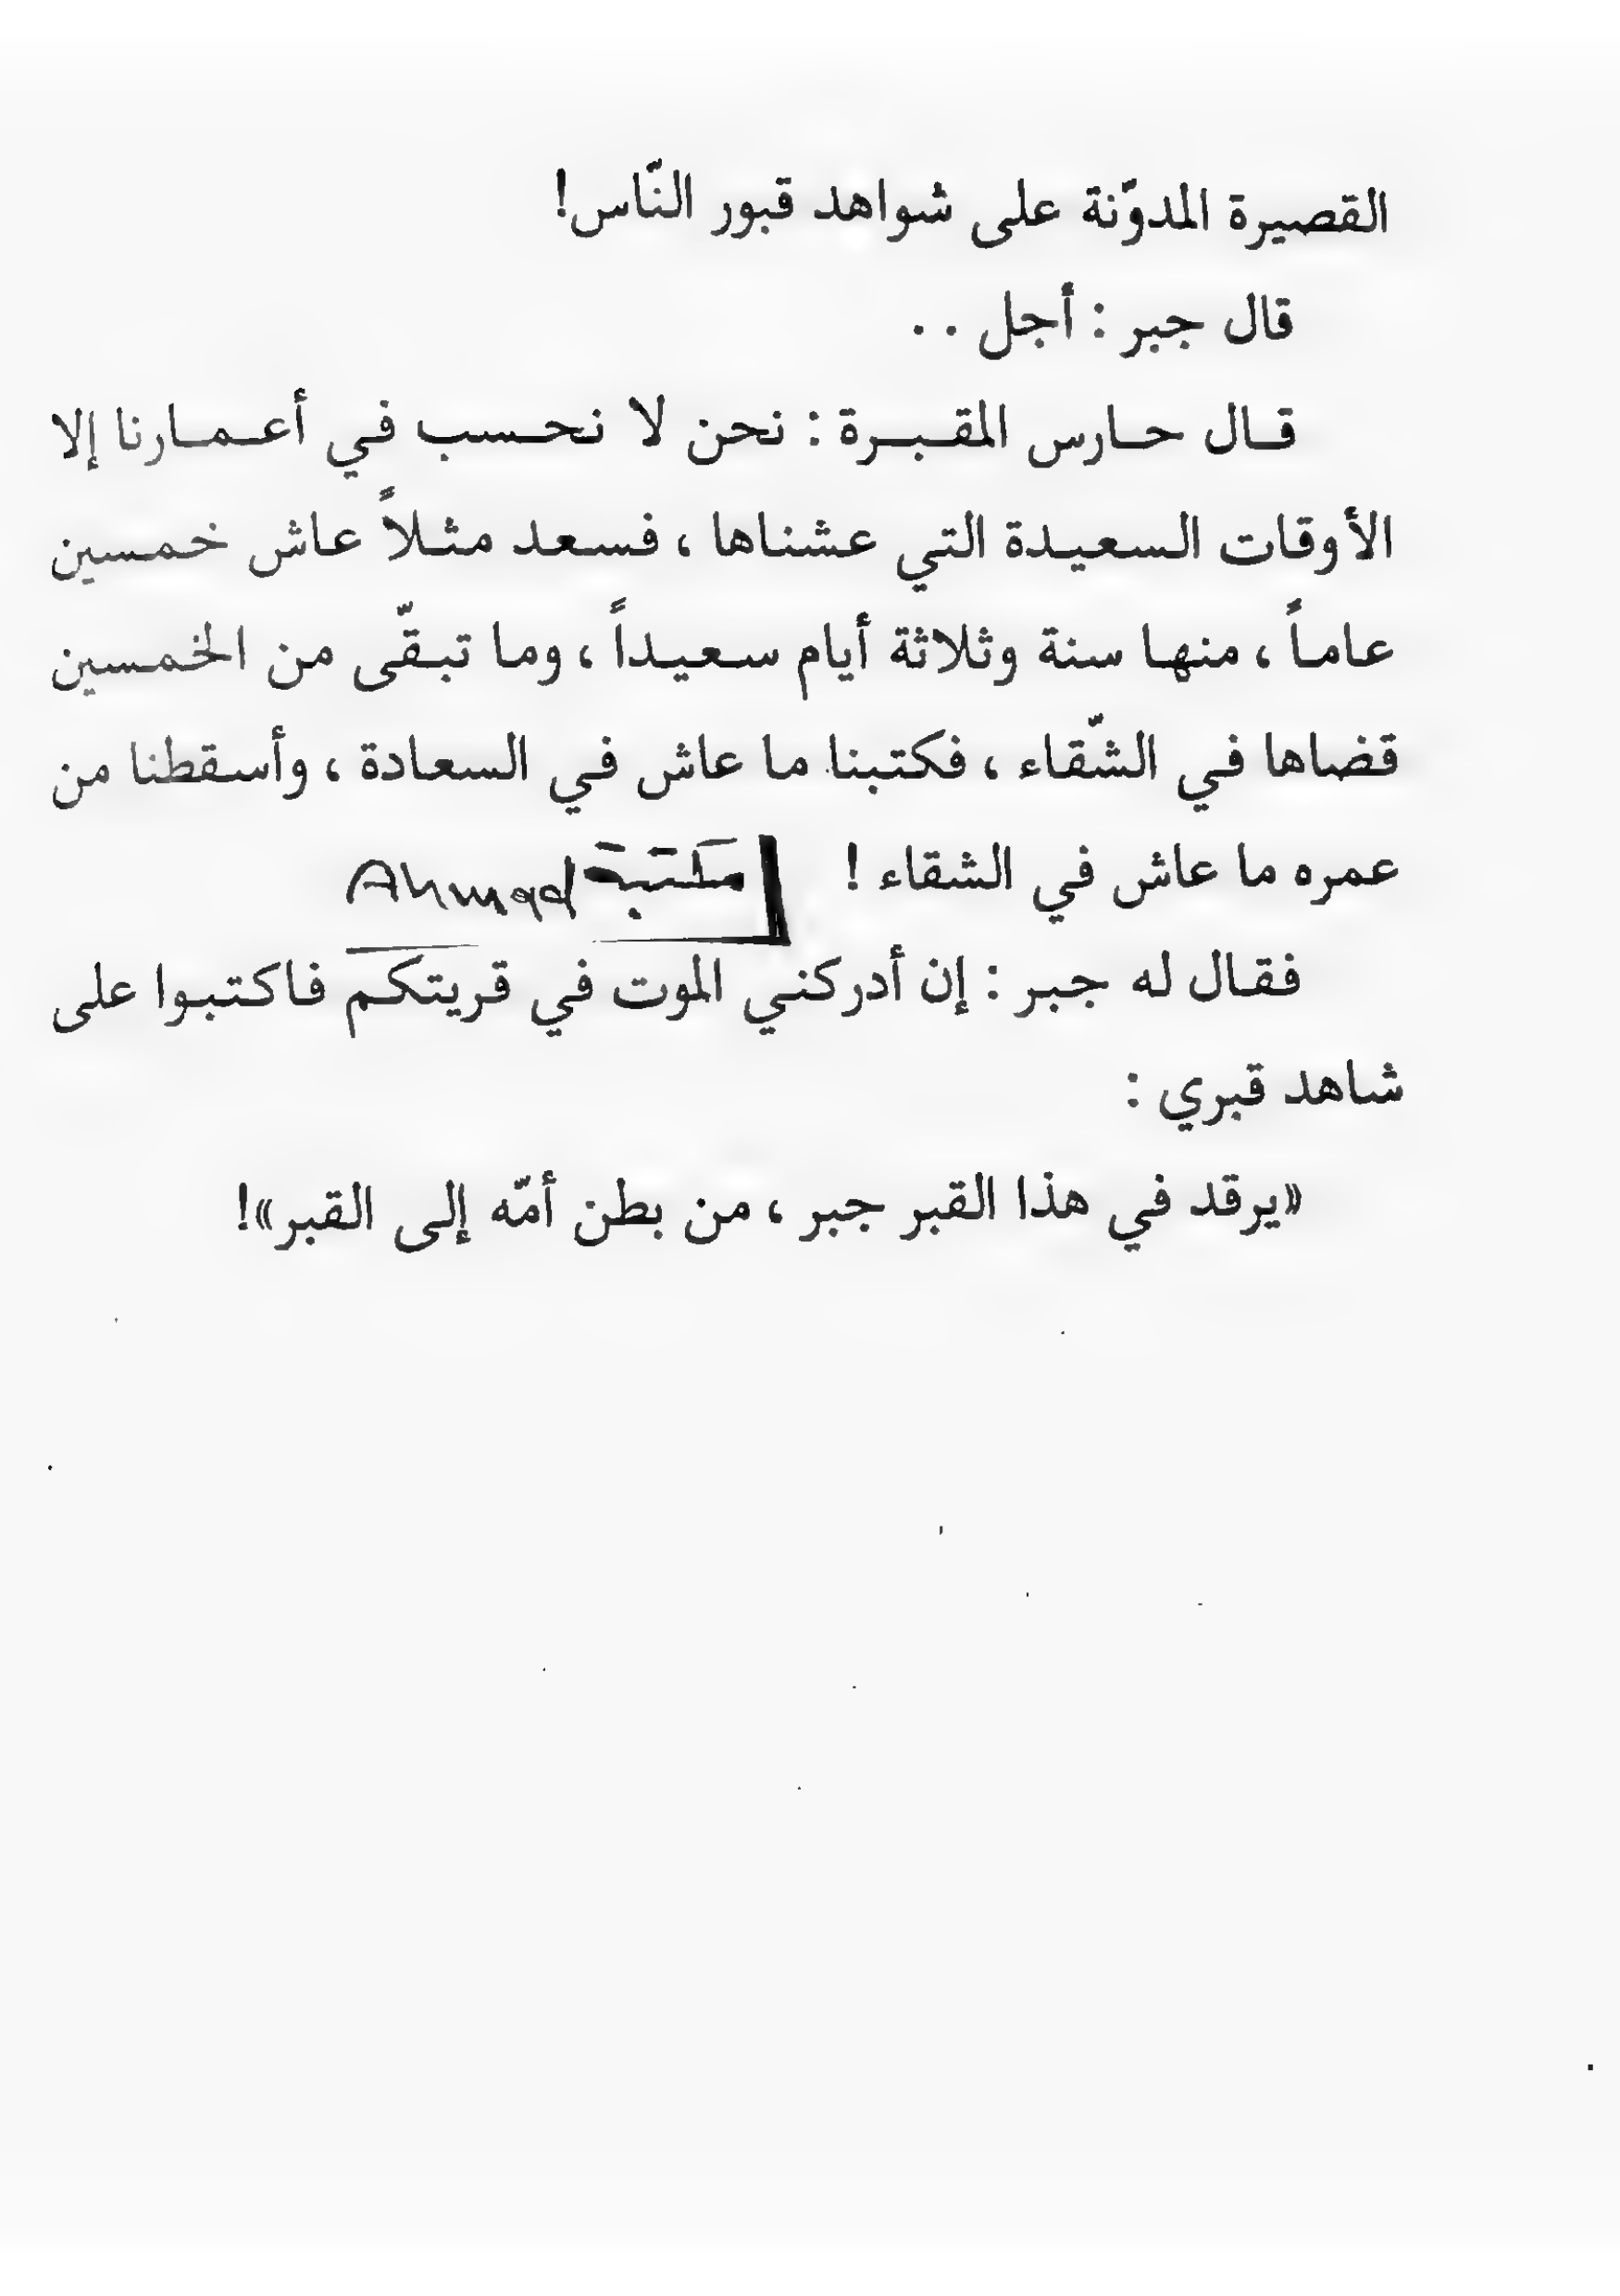 القصيرة المدوّنة على شواهد قبور النّاس!
قال جبر : أجل . .
قال حارس المقبرة : نحن لا نحسب في أعمارنا إلا
الأوقات السعيدة التي عشناها ، فسعد مثلاً عاش خمسين
عاماً ، منها سنة وثلاثة أيام سعيداً ، وما تبقّى من الخمسين
قضاها في الشّقاء ، فكتبنا ما عاش في السعادة ، وأسقطنا من
عمره ما عاش في الشقاء ! مكتبة Ahmad
فقال له جبر : إن أدركني الموت في قريتكم فاكتبوا على
شاهد قبري :
«يرقد في هذا القبر جبر ، من بطن أمّه إلى القبر»!